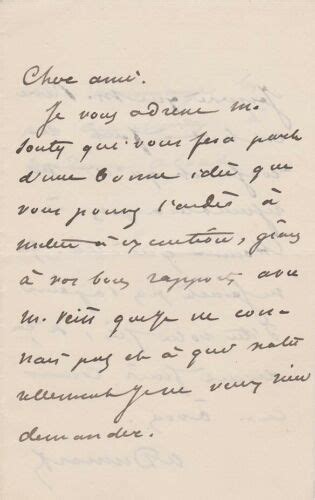 Cher ami.
Je vous adresse m.
Souty qui vous fera part
d'une bonne idée que
vous pouvez l'aider à
mettre à exécution, grâce
à vos bons rapports avec
m. Veiss que je ne con-
nais pas et à qui natu
rellement je ne veux rien
demander.
ADumas f